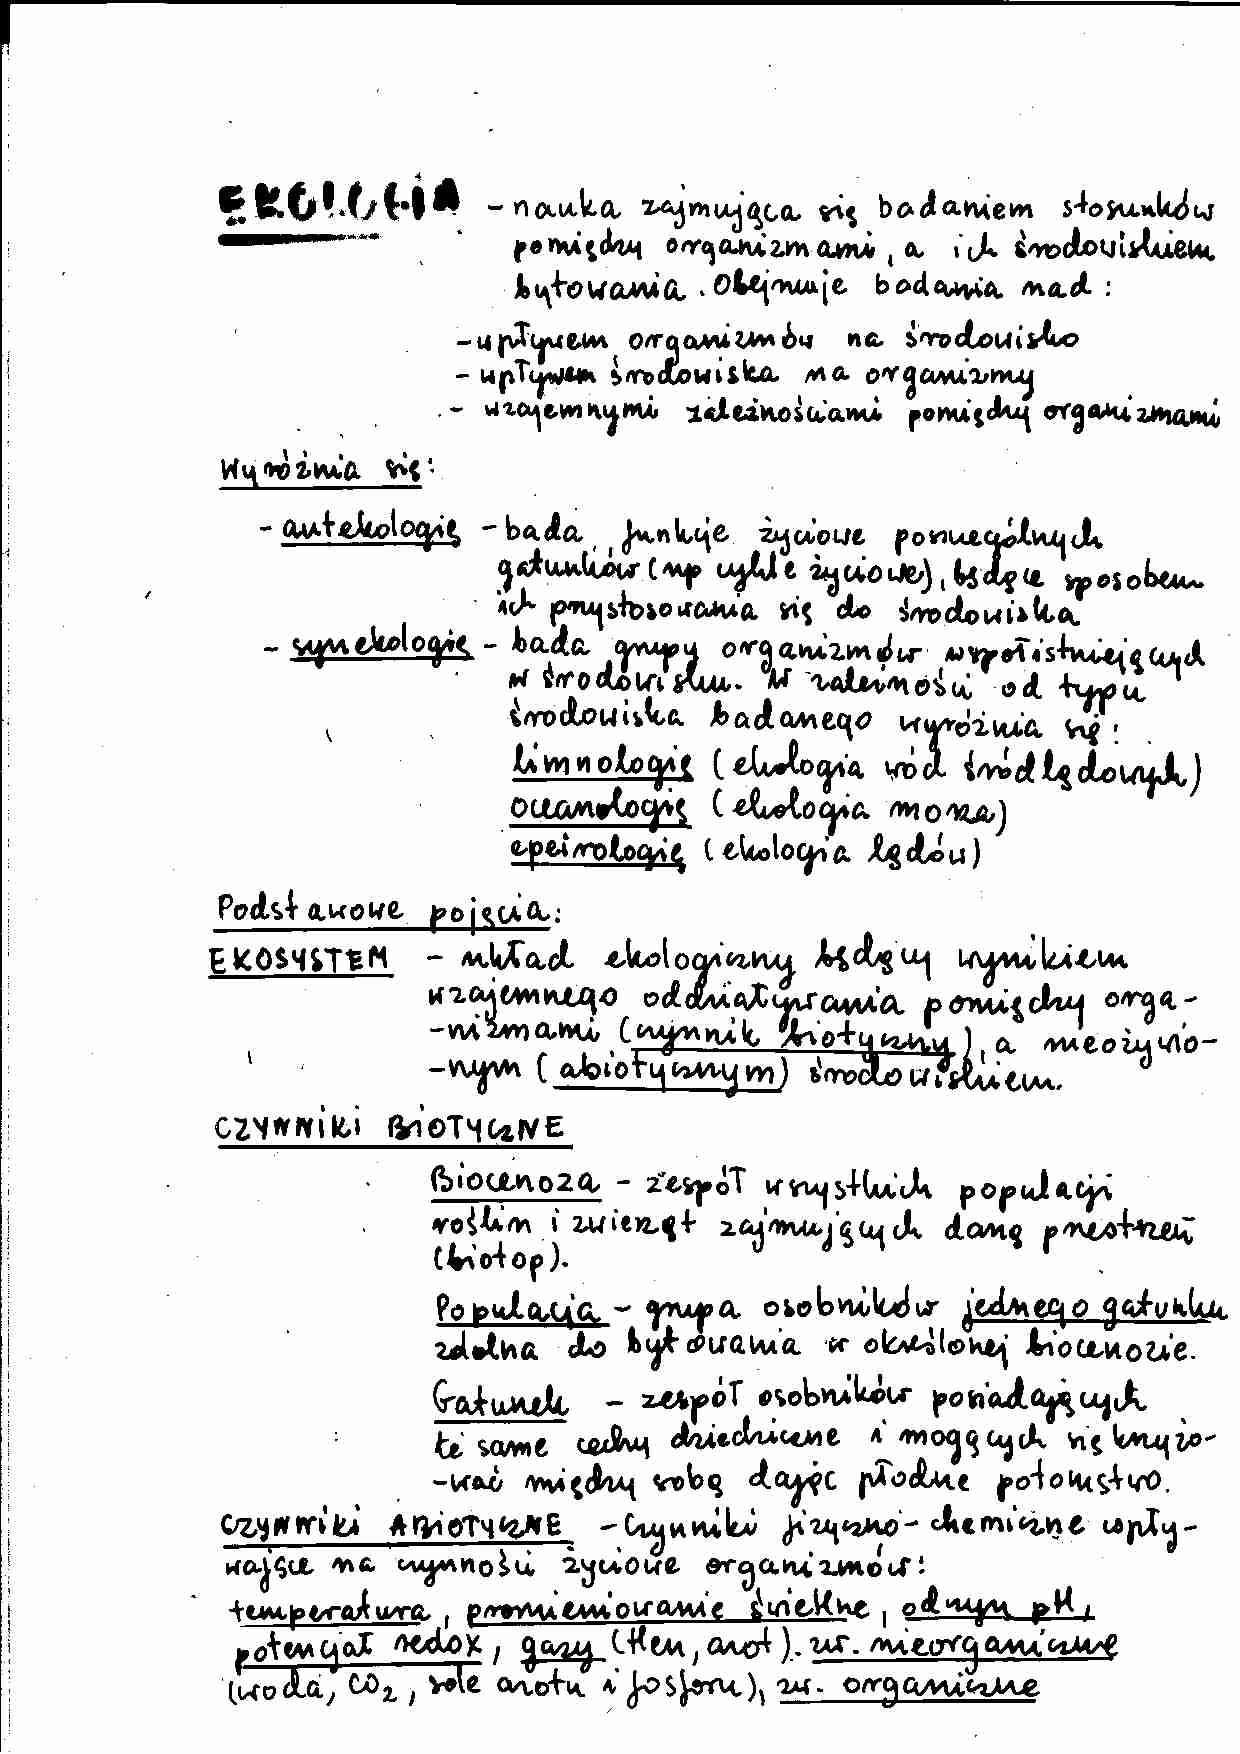 EKOLOGIA - nauka zajmująca się badaniem stosunków
pomiędzy organizmami, a ich środowiskiem
bytowania. Obejmuje badania nad:
- wpływem organizmów na środowisko
- wpływem środowiska na organizmy
- wzajemnymi zależnościami pomiędzy organizmami
Wyróżnia się:
- autekologię - bada funkcje życiowe poszczególnych
gatunków (np cykle życiowe), będące sposobem
ich przystosowania się do środowiska
- synekologię - bada grupy organizmów współistniejących
w środowisku. W zależności od typu
środowiska badanego wyróżnia się:
limnologię (ekologia wód śródlądowych)
oceanologię (ekologia morza)
epeirologię (ekologia lądów)
Podstawowe pojęcia:
EKOSYSTEM - układ ekologiczny będący wynikiem
wzajemnego oddziaływania pomiędzy orga-
-nizmami (czynnik biotyczny), a nieożywio-
-nym (abiotycznym) środowiskiem.
CZYNNIKI BIOTYCZNE
Biocenoza - zespół wszystkich populacji
roślin i zwierząt zajmujących daną przestrzeń
(biotop).
Populacja - grupa osobników jednego gatunku
zdolna do bytowania w określonej biocenozie.
Gatunek - zespół osobników posiadających
te same cechy dziedziczne i mogących się krzyżo-
-wać między sobą dając płodne potomstwo.
CZYNNIKI ABIOTYCZNE - Czynniki fizyczno-chemiczne wpły-
wające na czynności życiowe organizmów:
temperatura, promieniowanie świetlne, odczyn pH,
potencjał redox, gazy (tlen, azot). zw. nieorganiczne
(woda, CO2, sole azotu i fosforu), zw. organiczne